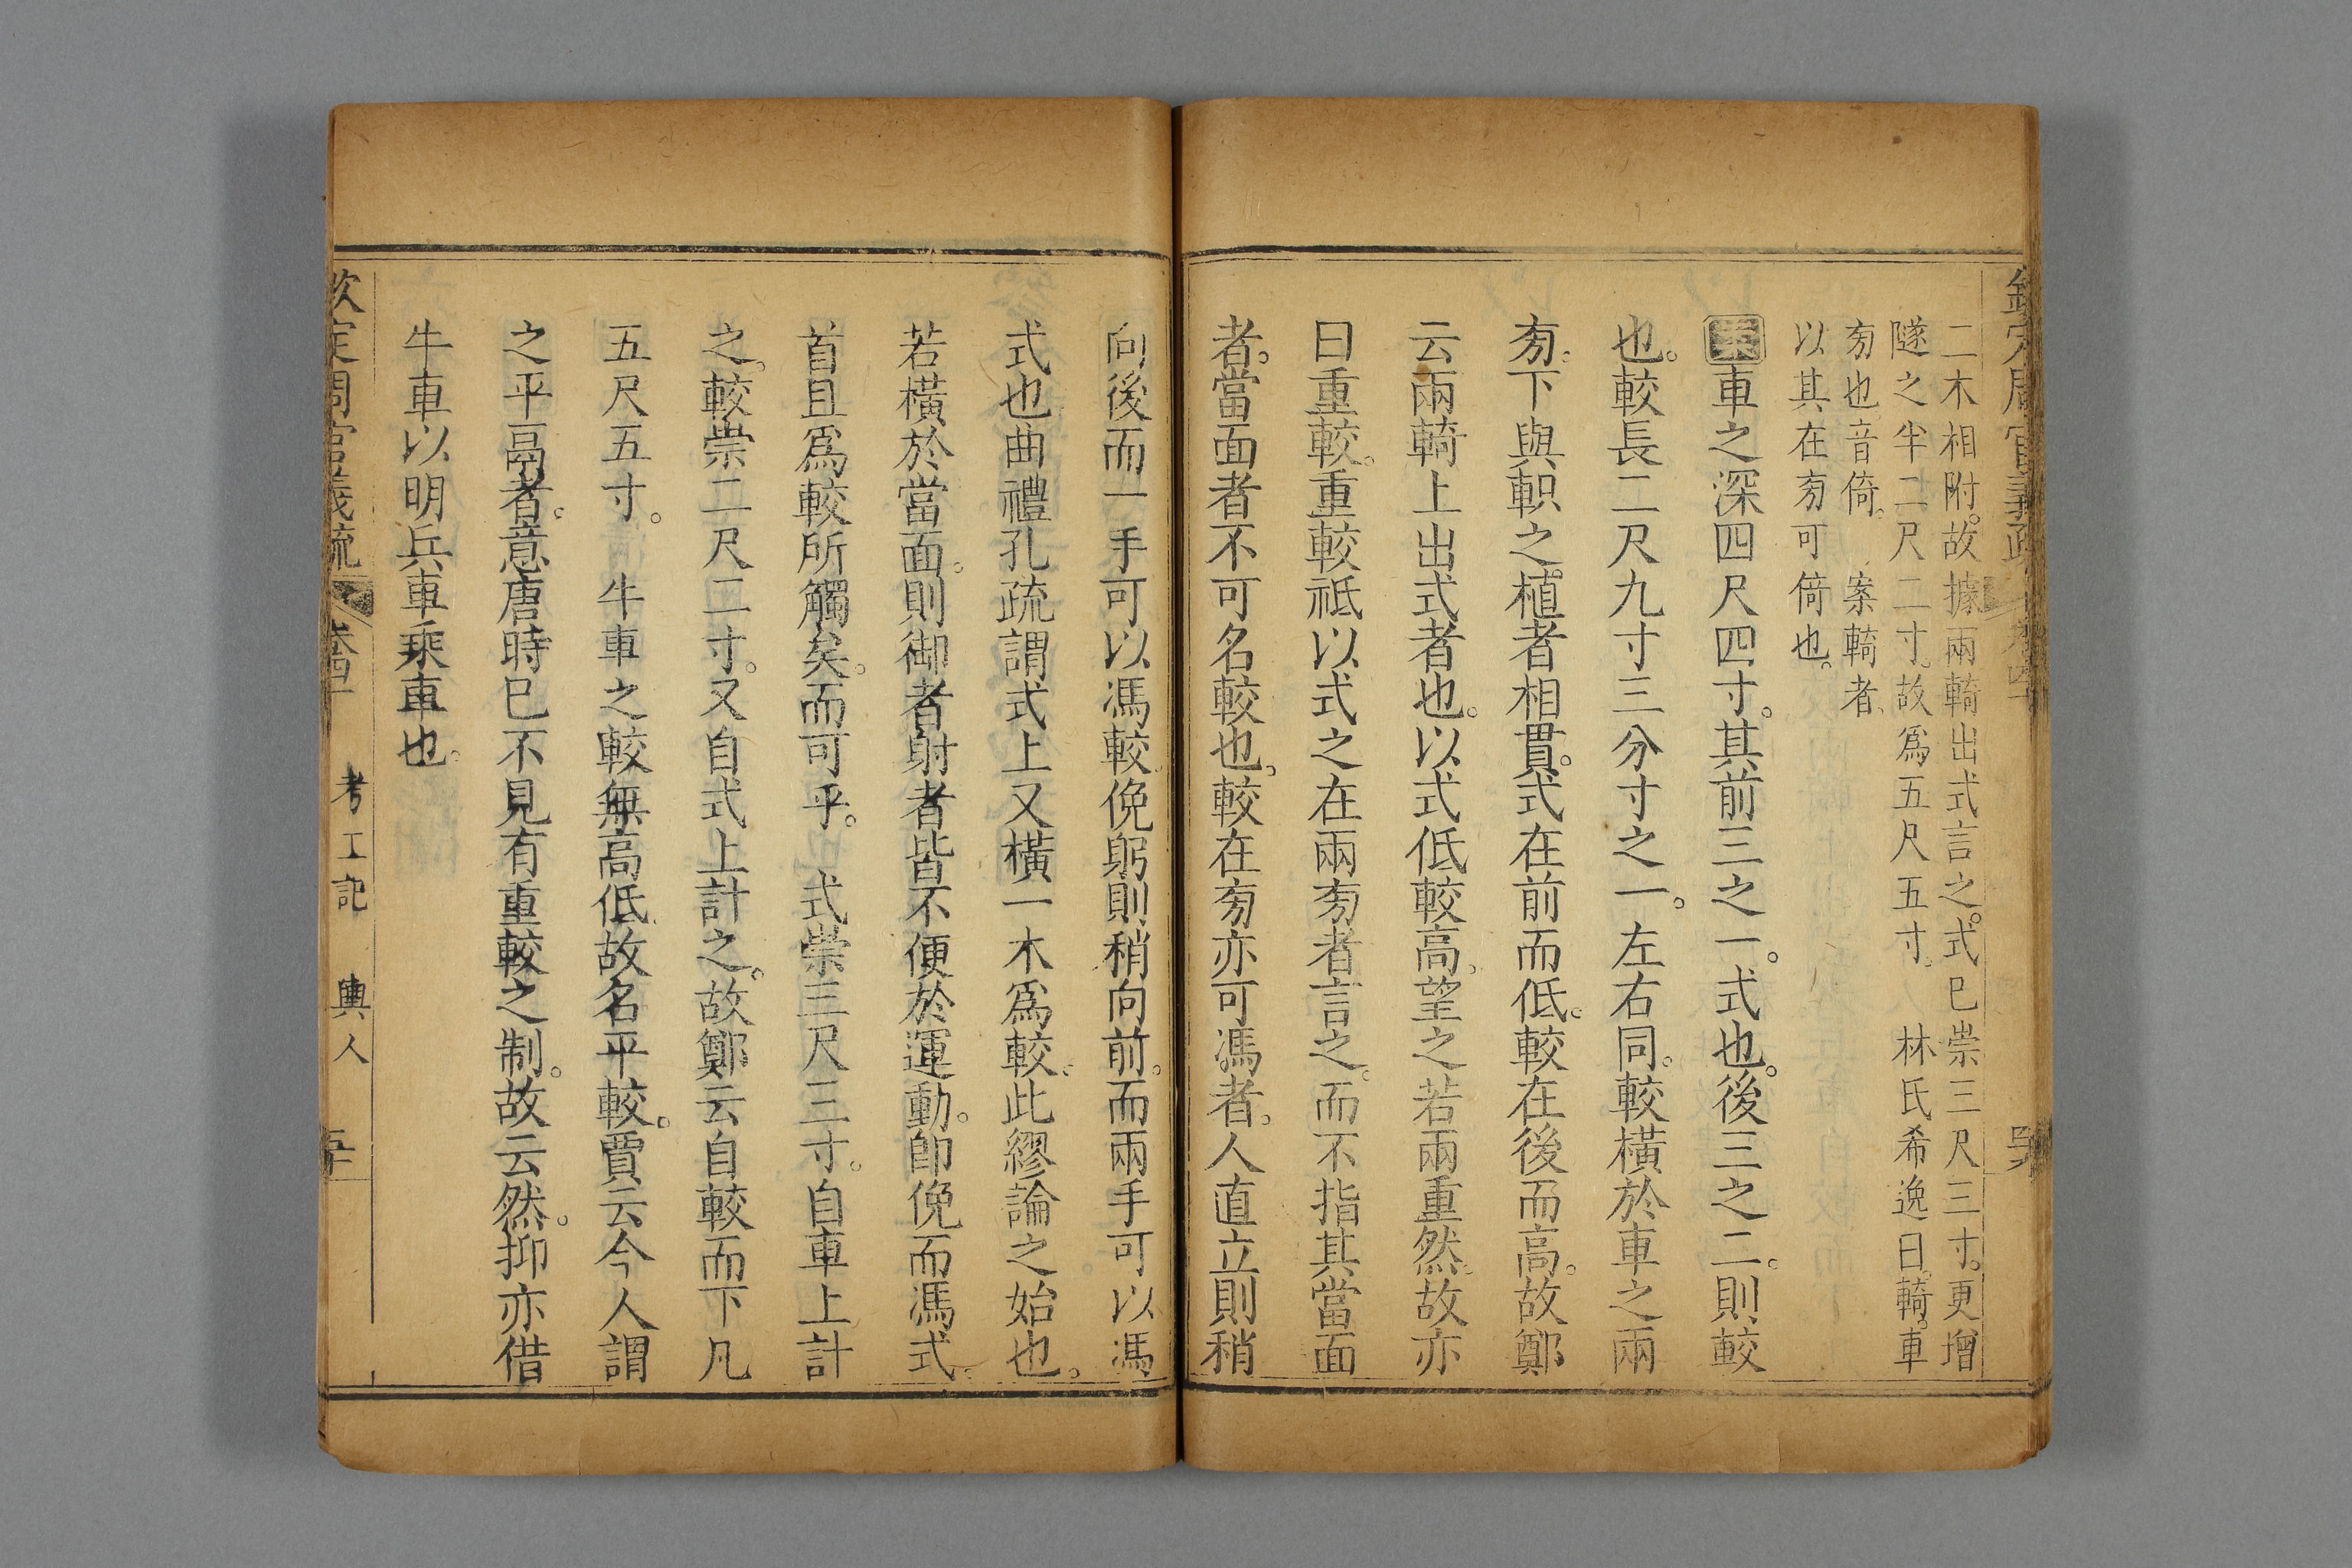 二木相附。故據兩輢出式言之。式已崇三尺三寸。更增
隧之半二尺二寸。故爲五尺五寸。 林氏希逸曰。輢。車
㫄也。音倚。 案輢者
以其在㫄可倚也。
案車之深四尺四寸。其前三之一。式也。後三之二。則較
也。較長二尺九寸三分寸之一。左右同。較橫於車之兩
㫄。下與軹之植者相貫。式在前而低。較在後而高。故鄭
云兩輢上出式者也。以式低較高。望之若兩重然。故亦
曰重較。重較祗以式之在兩㫄者言之。而不指其當面
者。當面者不可名較也。較在㫄亦可馮者。人直立則稍
向後而一手可以馮較。俛躬則稍向前。而兩手可以馮
式也。曲禮孔疏謂式上又橫一木爲較。此繆論之始也。
若橫於當面。則御者射者皆不便於運動。卽俛而馮式。
首且爲較所觸矣。而可乎。 式崇三尺三寸。自車上計
之。較崇二尺二寸。又自式上計之。故鄭云自較而下凡
五尺五寸。 牛車之較無高低。故名平較。賈云今人謂
之平鬲者。意唐時已不見有重較之制。故云然。抑亦借
牛車以明兵車乘車也。
欽定周官義疏 卷四十 考工記 輿人 五十